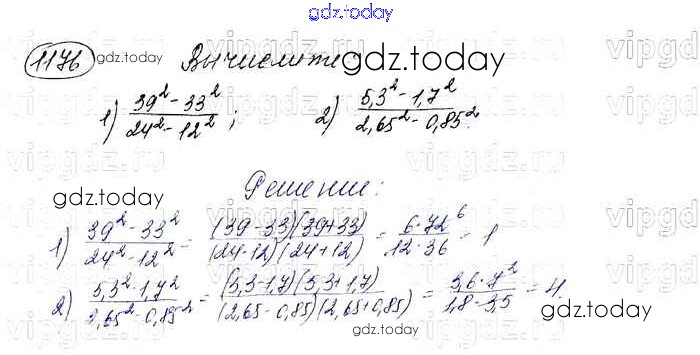 gdz.today
1176 gdz.today Вычислите gdz.today
1) (39² - 33²)/(24² - 12²); 2) (5,3² - 1,7²)/(2,65² - 0,85²)
gdz.today Решение:
1) (39² - 33²)/(24² - 12²) = ((39 - 33)(39 + 33))/((24 - 12)(24 + 12)) = (6·72⁶)/(12·36) = 1
2) (5,3² - 1,7²)/(2,65² - 0,85²) = ((5,3 - 1,7)(5,3 + 1,7))/((2,65 - 0,85)(2,65 + 0,85)) = (3,6·7²)/(1,8 - 3,5) = 4.
gdz.today gdz.today
vipgdz.ru